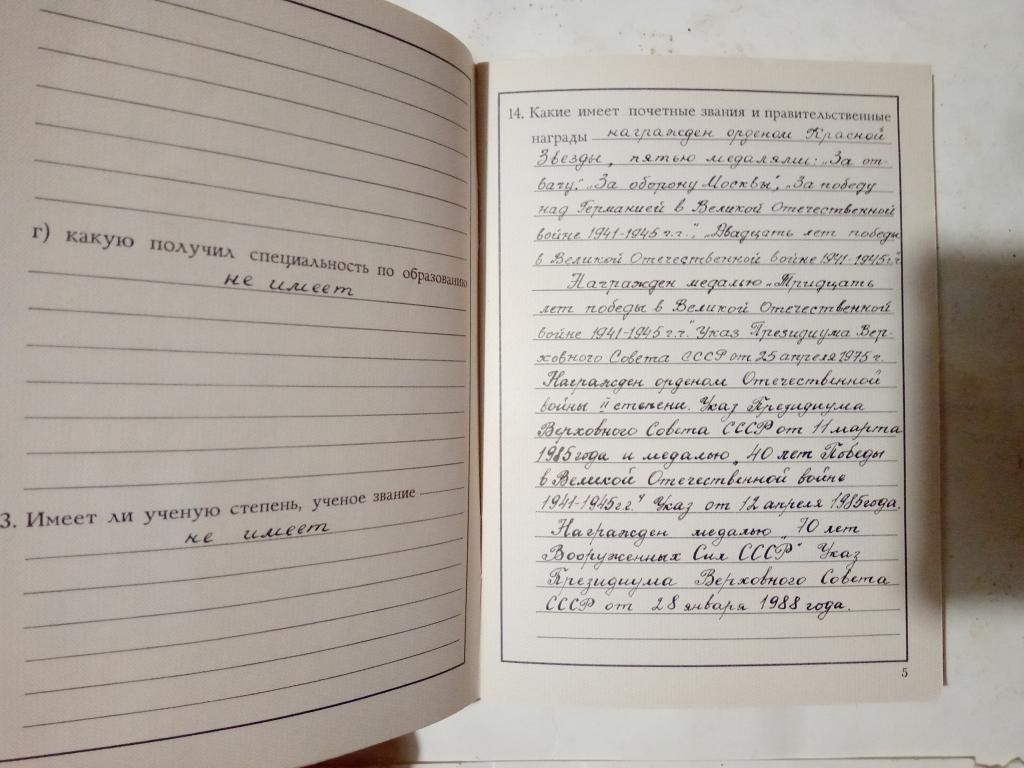 г) какую получил специальность по образованию
не имеет
3. Имеет ли ученую степень, ученое звание
не имеет
14. Какие имеет почетные звания и правительственные
награды награжден орденом Красной
Звезды, пятью медалями: „За от-
вагу", „За оборону Москвы", „За победу
над Германией в Великой Отечественной
войне 1941-1945 г.г.", „Двадцать лет победы
в Великой Отечественной войне 1941-1945г.г."
Награжден медалью „Тридцать
лет победы в Великой Отечественной
войне 1941-1945 г.г." Указ Президиума Вер-
ховного Совета СССР от 25 апреля 1975 г.
Награжден орденом Отечественной
войны II степени. Указ Президиума
Верховного Совета СССР от 11 марта
1985 года и медалью „40 лет Победы
в Великой Отечественной войне
1941-1945г.г." Указ от 12 апреля 1985 года.
Награжден медалью „70 лет
Вооруженных Сил СССР" Указ
Президиума Верховного Совета
СССР от 28 января 1988 года.
5